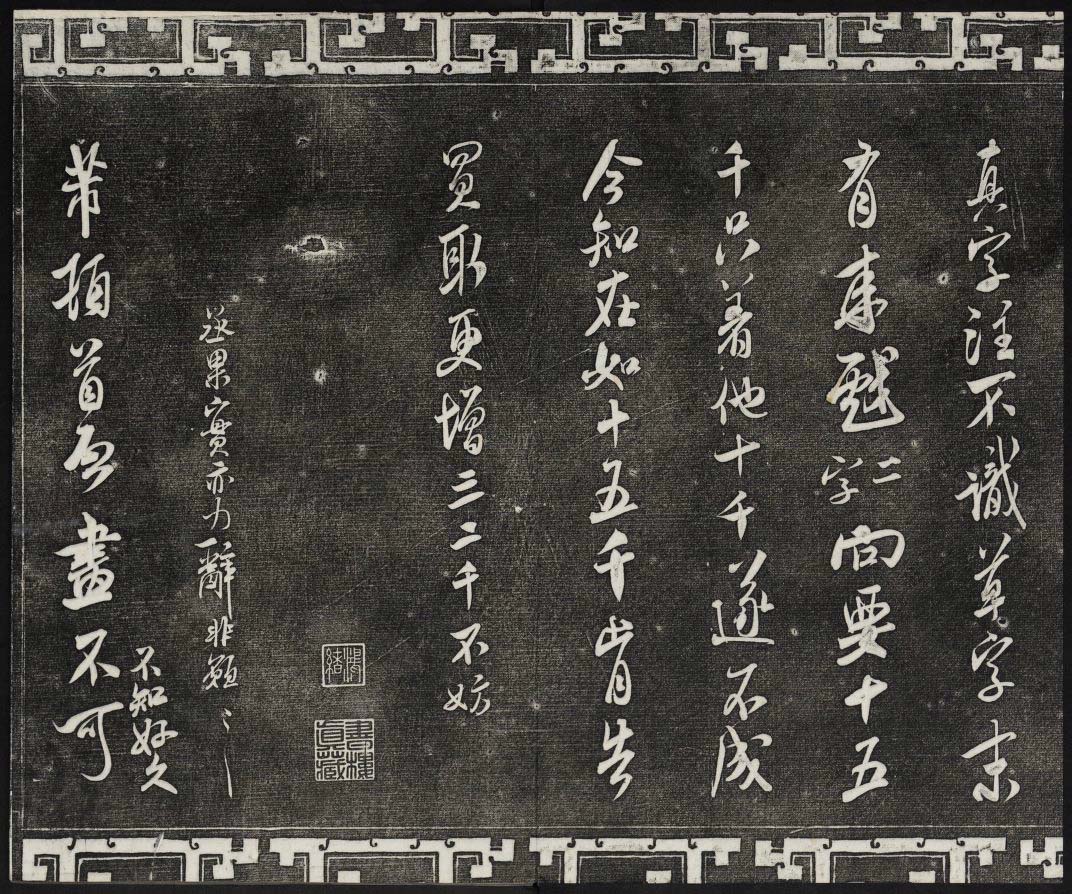 真字注不識草字末
有來戩二字向要十五
千只着他十千遂不成
今知在如十五千肯告
買取更增三二千不妨
書樓真藏
丞果實亦力辭非願
不知好久
芾頓首啓畫不可